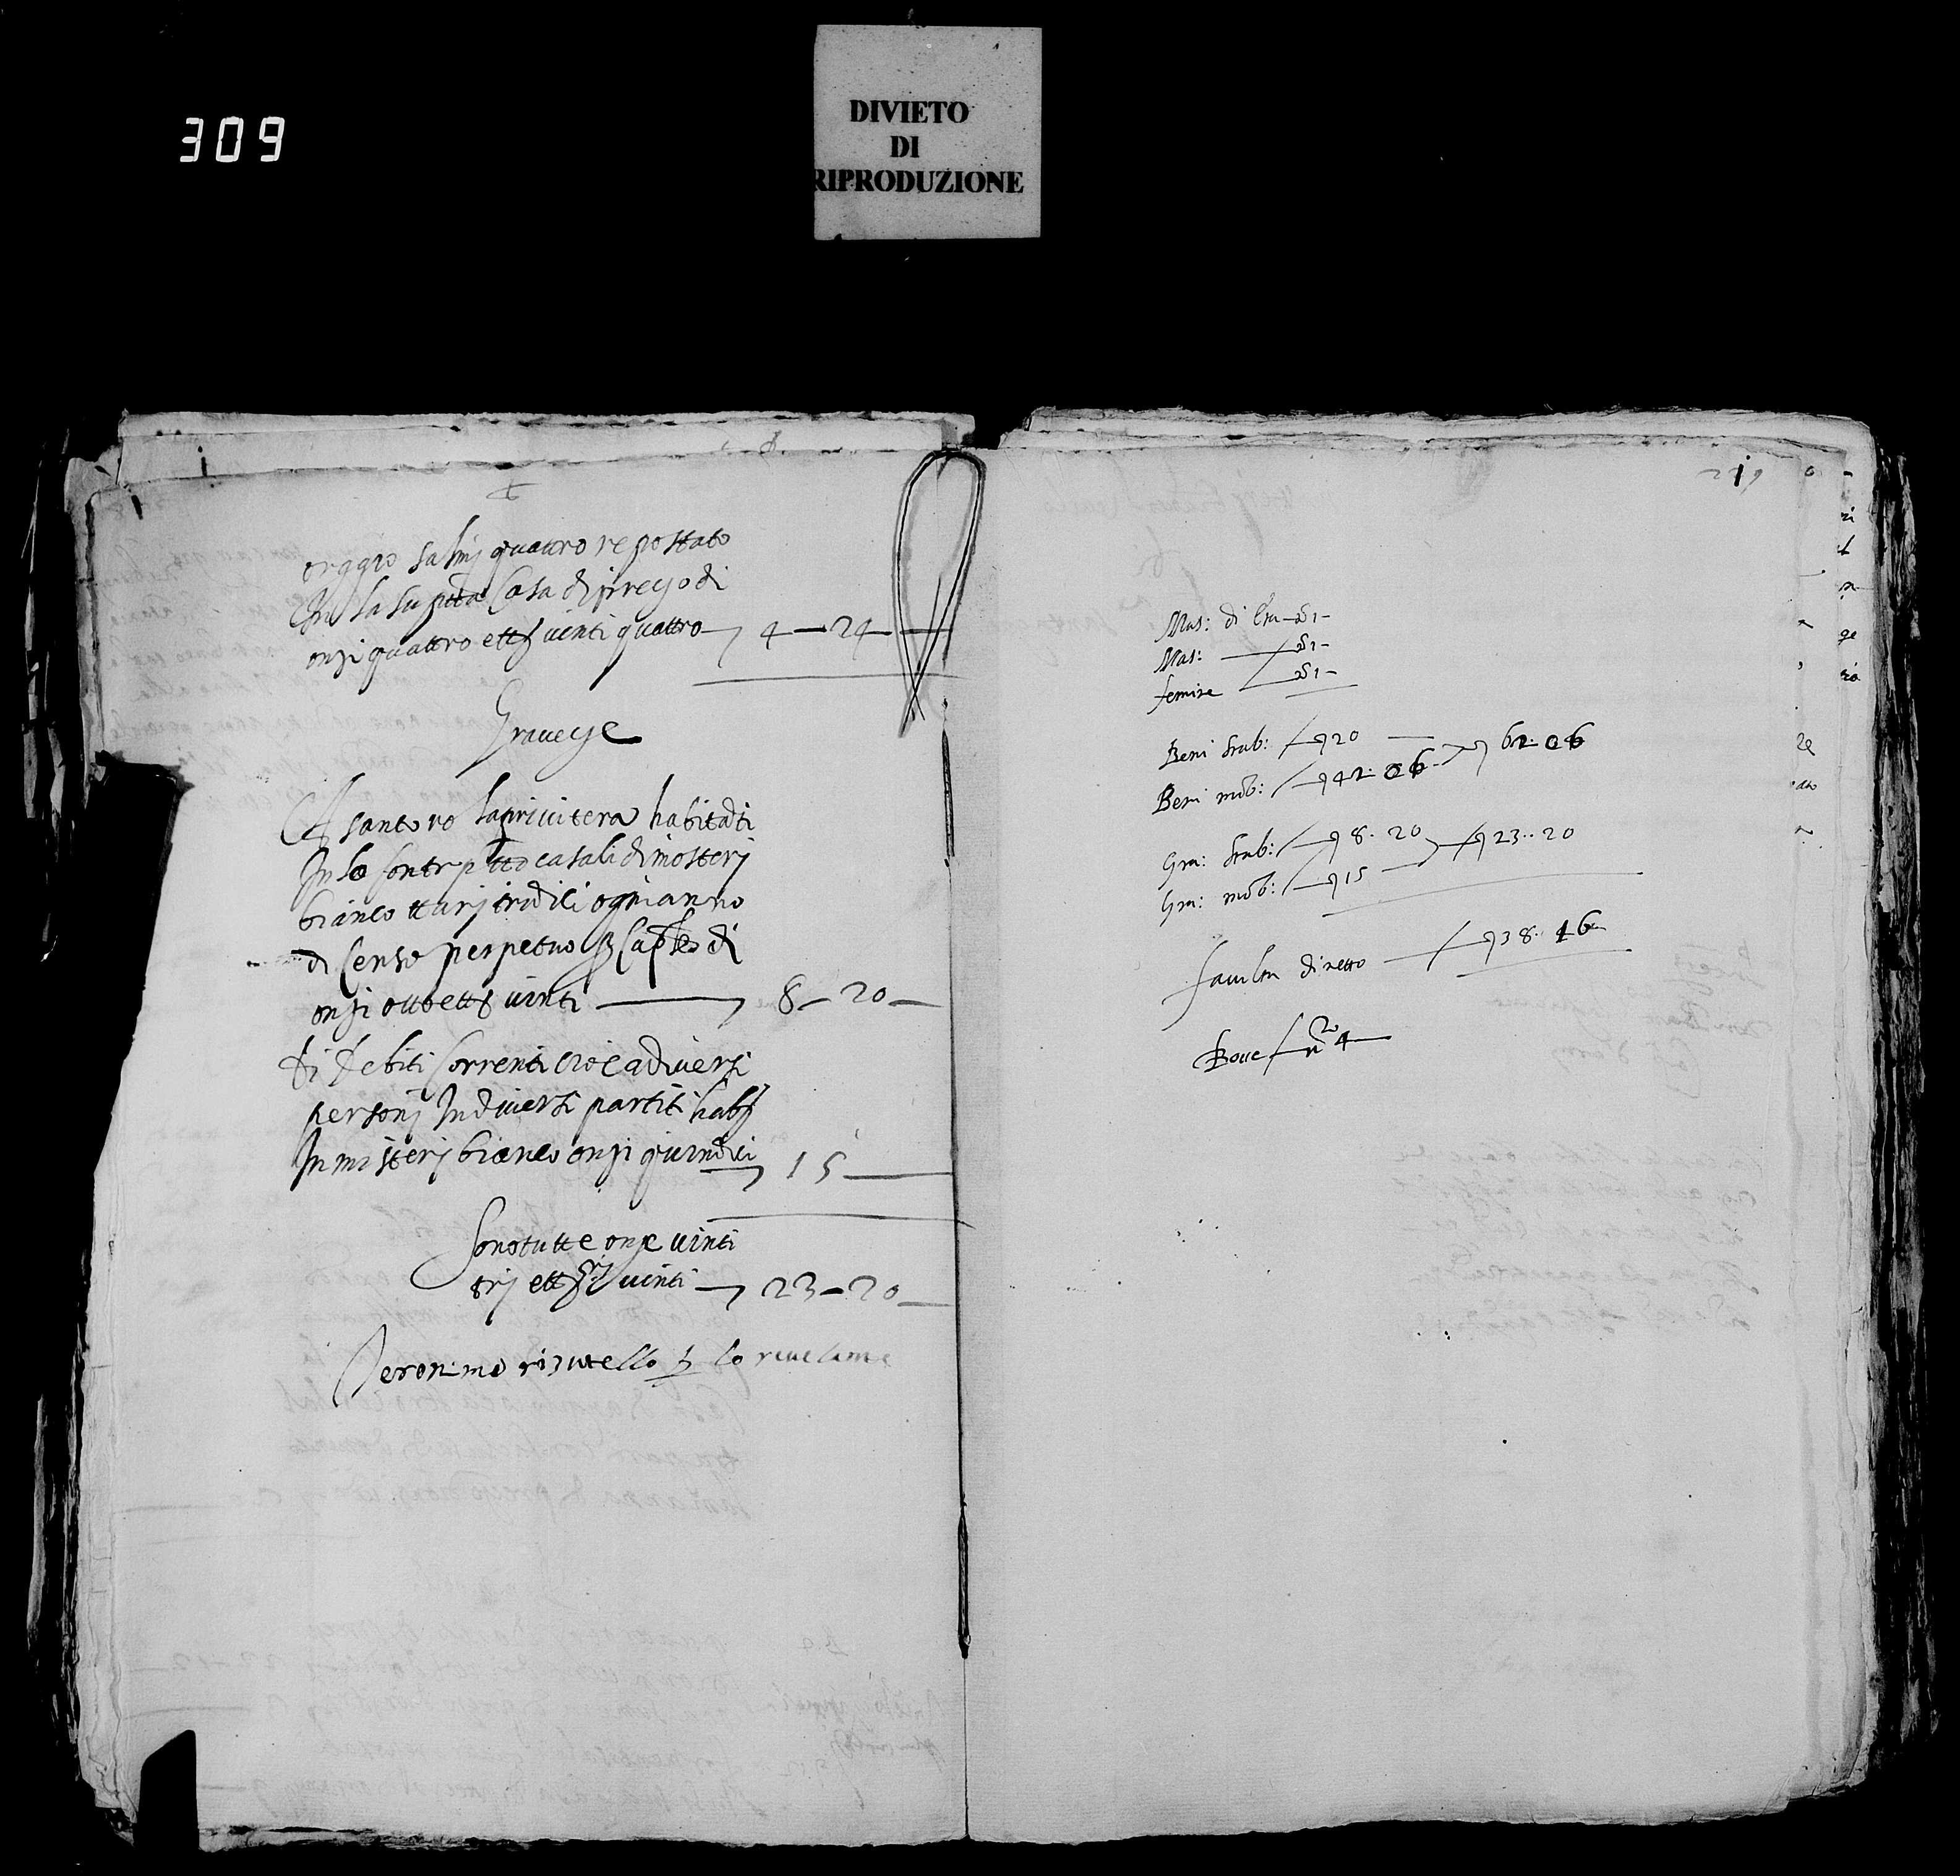 309
DIVIETO
DI
RIPRODUZIONE
orggio salmj quattro repostato
In la su ptta Casa di preyo di
onzi quattro ett vinti quattro 4 — 24 —
Graueze
A santoro la privitera habitadi
In lo sontr ptto casali di mosterj
bianco ttarj tridici ogni anno
di Censo perpetuo Caples di
onzi otto ett vinti — 8 — 20 —
di debiti Correnti cioè a diuersi
personj In diuersi partiti habj
In mosterj bianco onzi quindici 15 —
Sono tutte onze vinti
trj ett rj vinti — 23 — 20
Jeronimo rizutello lo reuelante
219
Mas: di Eta — 1 —
Mas: — 1 —
femine — 1 —
Beni stab: 20 —
Beni mob: 42. 06 — 62. 06
Gra: stab: 8. 20
Gra: mob: 15 — 23.. 20
faculta di netto — 38.. 16
Boue no 4 —